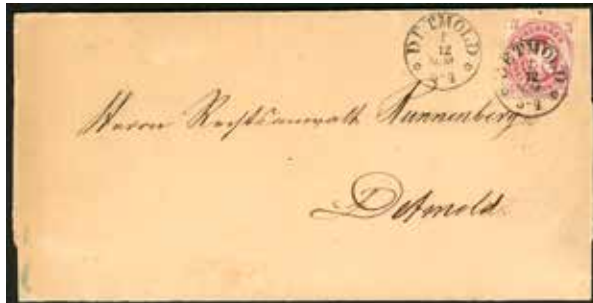 DETMOLD
12
3-4
DETMOLD
12
3-4
Herrn Rechtsanwalt Runnenberg
Detmold